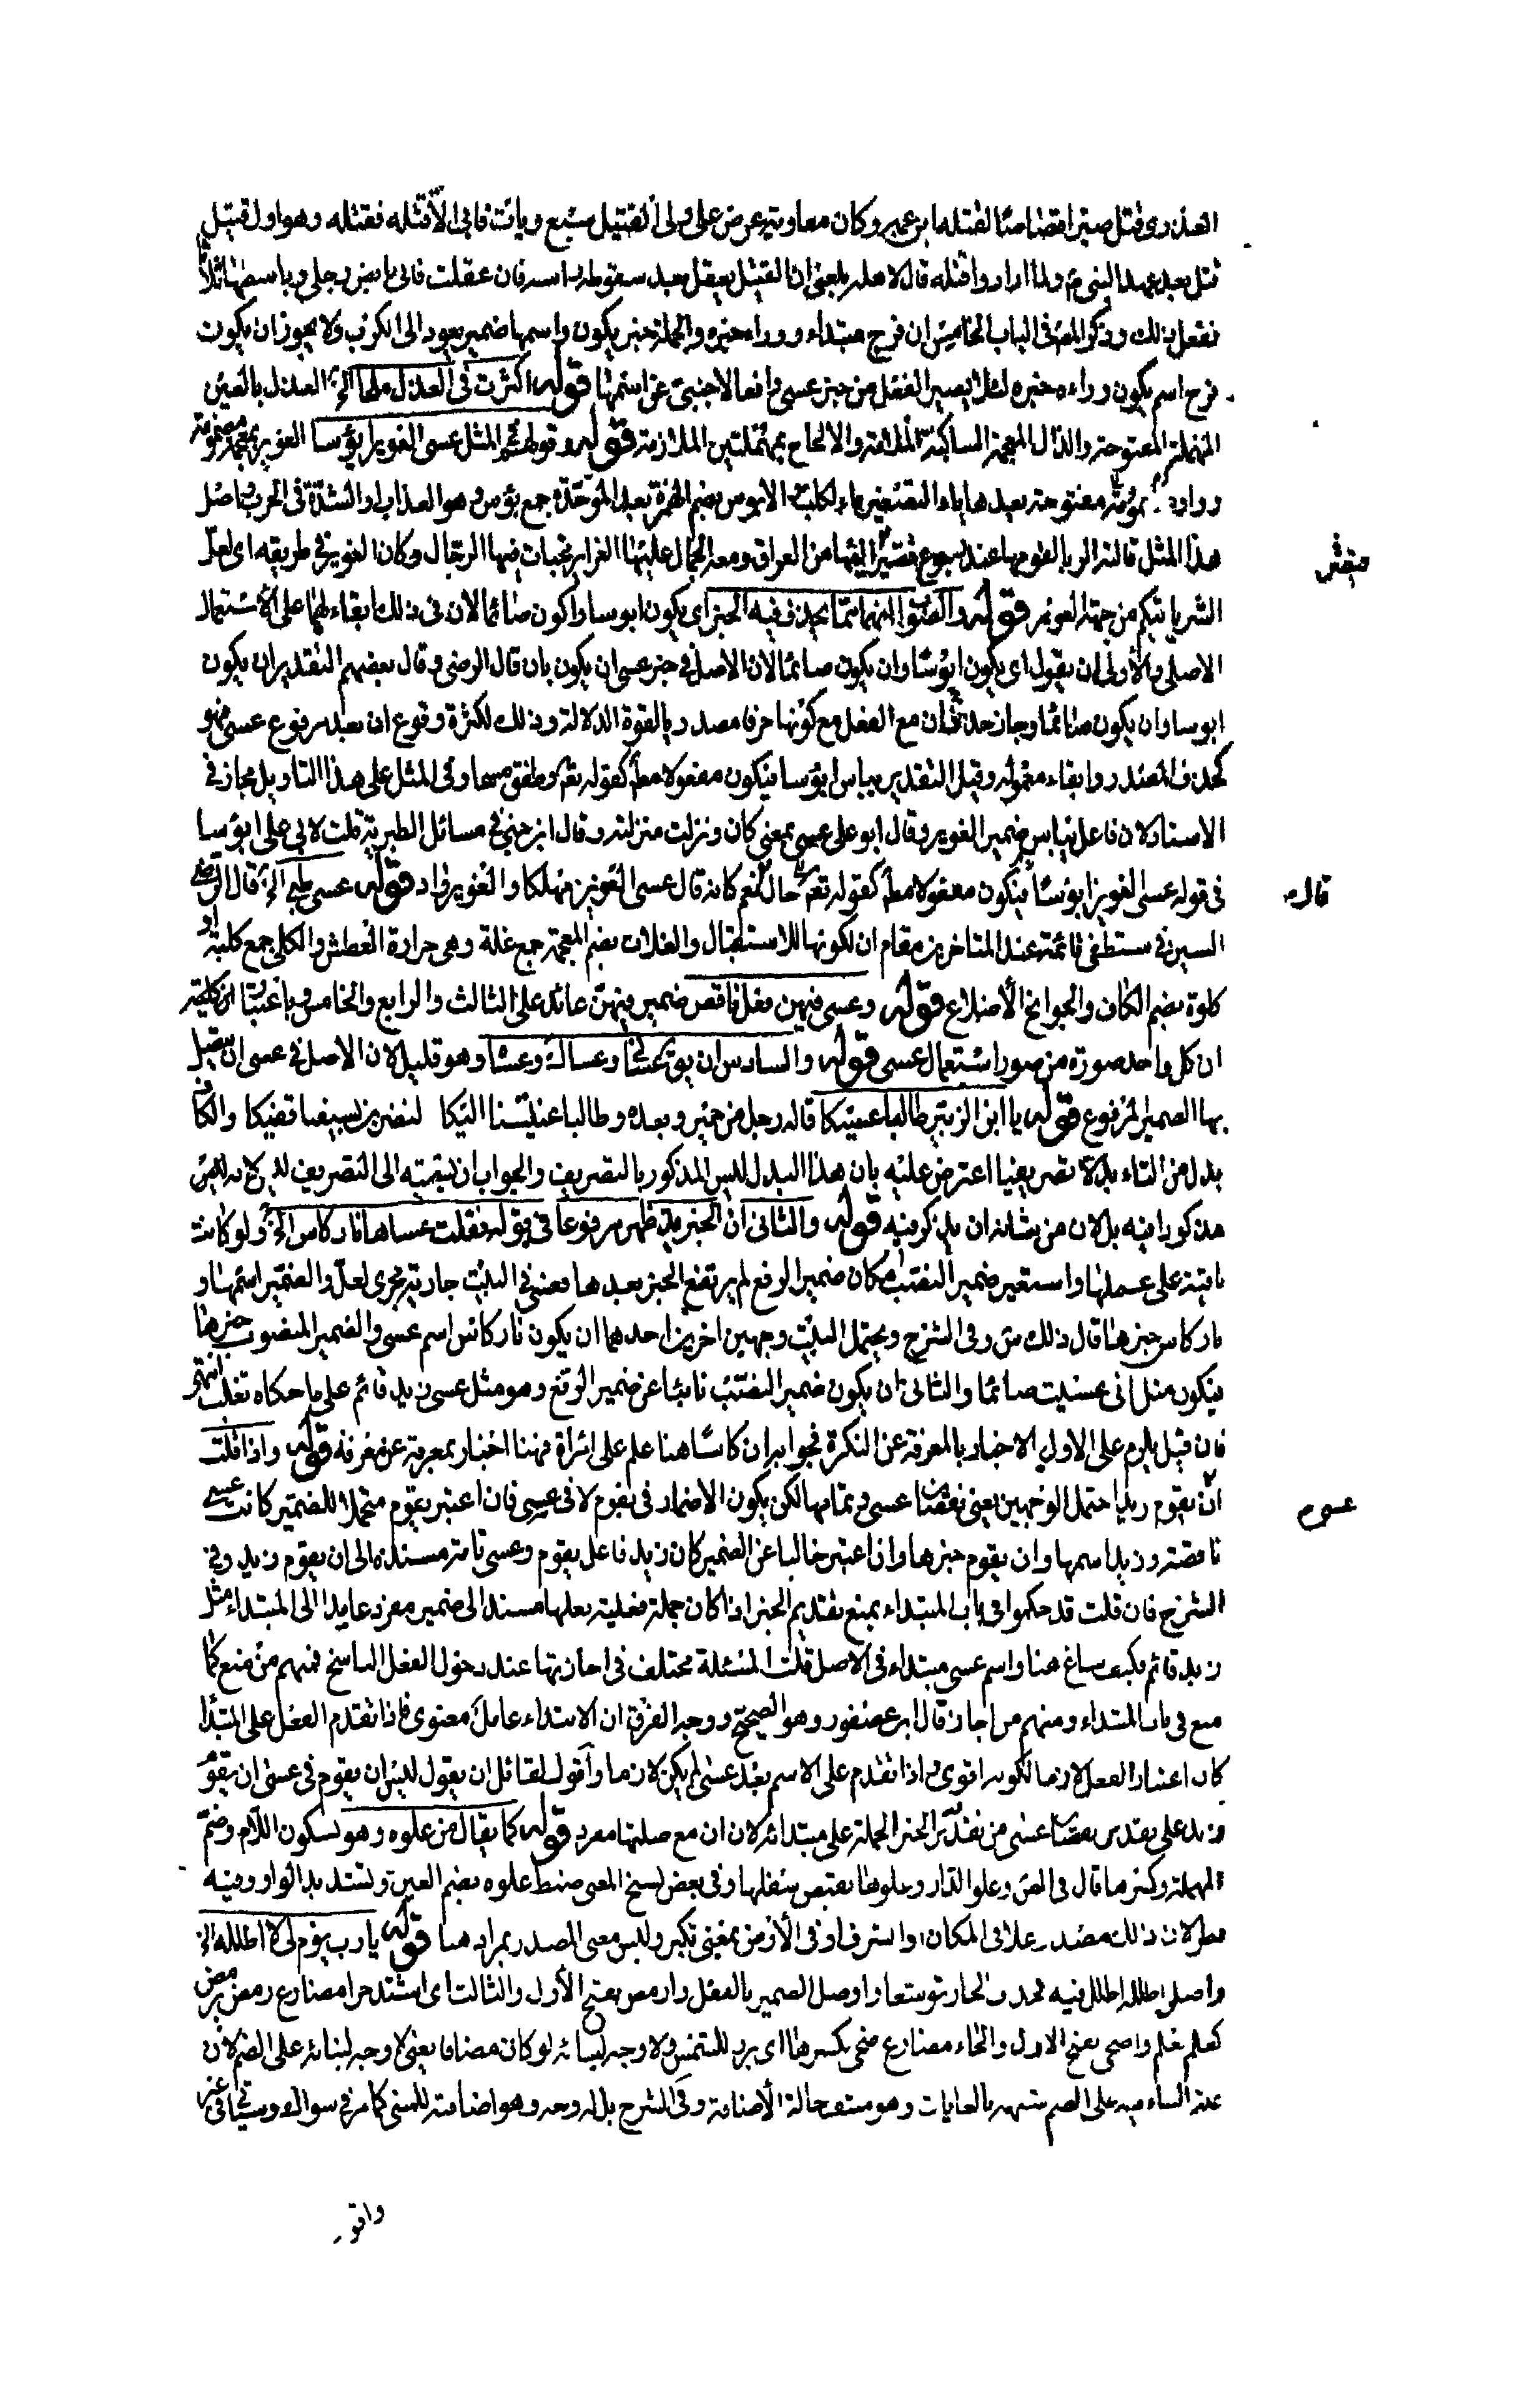 العذري قتل صبرا قصاصا لقتله ابن عمه وكان معاوية عرض على ولى القتيل سبع ديات فابى الا قتله فقتله وهو اول قتيل
قتل بعد عهد النبي م ولما ارادوا قتله قال لاهله بلغني ان القتيل يعقل بعد سقوط راسه فان عقلت فاني قابض رجلي وباسطها ثلاثا
ففعل ذلك وذكر المص فى الباب الخامس ان فرج مبتداء ووراء خبره والجملة خبر يكون واسمها ضمير يعود الى الكرب ولا يجوز ان يكون
فرج اسم يكون ووراءه خبره لئلا يصير الفعل من خبر عسى رافعا لاجنبي عن اسمها قوله اكثرت فى العذل ملحا الخ العذل بالعين
المهملة المفتوحة والذال المعجمة الساكنة الملامة والالحاح بمهملتين الملازمة قوله وقولهم فى المثل عسى الغوير ابؤسا الغوير بمعجمة مضمومة
وواو مفتوحة بعدها ياء التصغير ماء لكلب والابوس بضم الهمزة بعد الموحدة جمع بؤس وهو العذاب او الشدة فى الحرب واصل
هذا المثل قالته الزبا لقومها عند رجوع قصير اليها من العراق ومعه الجمال عليها الغراير مخبات فيها الرجال وكان الغوير فى طريقه اى لعل
الشر ياتيكم من جهة الغوير قوله والصواب انهما مما يحذف فيه الخبر اى يكون ابوسا واكون صائما لان فى ذلك ابقاء لهما على الاستعمال
الاصلي والاولى ان يقول اى يكون ابؤسا وان يكون صائما لان الاصل فى خبر عسى ان يكون بان قال الرضى وقال بعضهم التقدير ان يكون
ابوسا وان يكون صائما وجاز حذف ان مع الفعل مع كونها حرفا مصدريا لقوة الدلالة وذلك لكثرة وقوع ان بعد مرفوع عسى فهو
كحذف المصدر وابقاء معموله وقيل التقدير يباس ابؤسا فيكون مفعولا مطلقا كقوله تعم وطفق مسحا وفى المثل على هذا التاويل مجاز فى
الاسناد لان فاعل يباس ضمير الغوير وقال ابو علي عسى بمعنى كان ونزلت منزلته وقال ابن جني فى مسائل الطبرية قلت لابي علي ابؤسا
فى قوله عسى الغوير ابؤسا حال نعم كانه قال عسى الغوير مهلكا والغوير واد قوله عسى طيئ الخ قال الرضى
السين فى ستطفى قائمة عند المتاخرين مقام ان لكونها للاستقبال والغلات بضم المعجمة جمع غلة وهى حرارة العطش والكلى جمع كلية او
كلوة بضم الكاف والجوانح الأضلاع قوله وعسى فيهن فعل ناقص ضمير فيهن عائد على الثالث والرابع والخامس باعتبار
ان كل واحد صورة من صور استعمال عسى قوله والسادس ان يق عساى وعساك وعساه وهو قليل لان الاصل فى عسى ان يتصل
بها الضمير المرفوع قوله يا ابن الزبير طالما عصيكا قاله رجل من حمير وبعده وطالما عنيتنا اليكا لنضربن بسيفنا قفيكا والكاف
بدل من التاء بدلا تصريفيا اعترض عليه بان هذا البدل ليس المذكور بالتصريف والجواب ان نسبته الى التصريف
مذكورا فيه بل لان من شانه ان يذكر فيه قوله والثانى ان الخبر قد ظهر مرفوعا فى قوله فقلت عساها نار كاس الخ ولو كانت
باقية على عملها واستعير ضمير النصب مكان ضمير الرفع لم يرتفع الخبر بعدها فعسى فى البيت جارية مجرى لعل والضمير اسمها و
نار كاس خبرها قال ذلك ش وفى الشرح ويحتمل البيت وجهين اخرين احدهما ان يكون نار كاس اسم عسى والضمير المنصوب خبرها
فيكون مثل انى عسيت صائما والثانى ان يكون ضمير النصب نائبا عن ضمير الرفع وهو مثل عسى زيد قائم على ما حكاه ثعلب انتهى
فان قيل يلزم على الاول الاخبار بالمعرفة عن النكرة فجوابه ان كاسا هنا علم على امراة فهنا اخبار بمعرفة عن معرفة قوله واذا قلت
ان يقوم زيد احتمل الوجهين يعنى نقصان عسى وتمامها لكن يكون الاضمار فى يقوم لا فى عسى فان اعتبر يقوم متحملا للضمير كانت عسى
ناقصة وزيد اسمها وان يقوم خبرها وان اعتبر خاليا عن الضمير كان زيد فاعل يقوم وعسى تامة مسندة الى ان يقوم زيد وفى
الشرح فان قلت قد حكموا فى باب المبتداء بمنع تقديم الخبر اذا كان جملة فعلية فعلها مسند الى ضمير مفرد عايد الى المبتداء مثل
زيد قائم فكيف ساغ هنا واسم عسى مبتداء فى الاصل قلت المسئلة مختلف فى اجازتها عند دخول الفعل الناسخ فمنهم من منع كما
منع فى باب المبتداء ومنهم من اجاز قال ابن عصفور وهو الصحيح ووجه الفرق ان الابتداء عامل معنوى فاذا تقدم الفعل على المبتدا
كان اعتبار الفعل لازما لكونه اقوى واذا تقدم على الاسم بعد عسى لم يكن لازما واقول لقائل ان يقول ليس ان يقوم فى عسى ان يقوم
زيد على تقدير نقصان عسى من تقدير الخبر الجملة على مبتدائه لان ان مع صلتها مفرد قوله كما يقال من علوه وهو بسكون اللام وضم
المهملة وكسرها قال فى الص وعلو الدار وعلوها نقيض سفلها وفى بعض نسخ المغنى ضبط علوه بضم العين وتشديد الواو وفيه
نظر لان ذلك مصدر علا فى المكان او الشرف او فى الأرض بمعنى تكبر وليس معنى المصدر بمراد هنا قوله يا رب يوم لى لا اظلله الخ
واصل اظلله اظلل فيه فحذف الجار توسعا واوصل الضمير بالفعل وارمض بفتح الأول والثالث اى اشتد حرا مضارع رمض يرمض
كعلم يعلم واضحى بفتح الاول والحاء مضارع ضحى بكسرها اى برز للشمس ولا وجه لبنائه لو كان مضافا يعنى لا وجه لبنائه على الضم لان
علة البناء فيه على الضم شبهه بالغايات وهو منتف حالة الأضافة وفى الشرح بل له وجه وهو اضافته للمبنى كما مر فى سواك وسيجئ فى غير
قال
عسى م
واقو